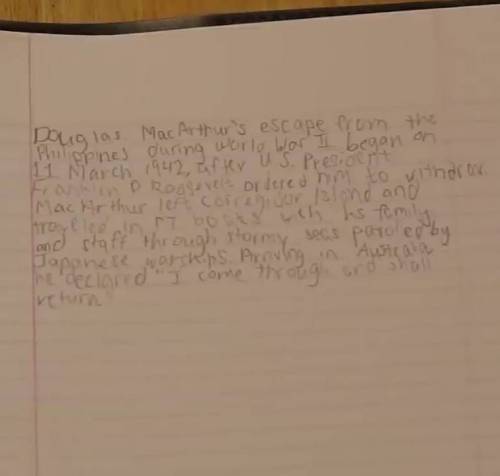 Douglas MacArthur's escape from the
Philippines during World War II began on
11 March 1942, after U.S. President
Franklin D Roosevelt ordered him to withdraw.
MacArthur left Corregidor Island and
traveled in PT boats with his family
and staff through stormy seas patroled by
Japanese warships. Arriving in Australia
he declared "I come through and shall
return"